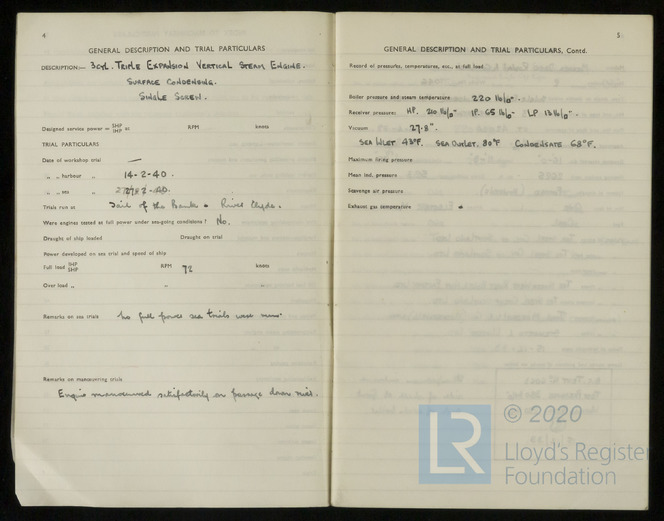 4
GENERAL DESCRIPTION AND TRIAL PARTICULARS
DESCRIPTION:— 3 CYL. TRIPLE EXPANSION VERTICAL STEAM ENGINE.
SURFACE CONDENSING.
SINGLE SCREW.
Designed service power = SHP IHP at RPM knots
TRIAL PARTICULARS
Date of workshop trial —
„ „ harbour „ 14-2-40.
„ „ sea
Trials run at Tail of the Bank & River Clyde.
Were engines tested at full power under sea-going conditions? No.
Draught of ship loaded Draught on trial
Power developed on sea trial and speed of ship
Full load IHP SHP RPM 72 knots
Over load „ „ „
Remarks on sea trials No full power sea trials were run.
Remarks on manœuvring trials
Engine manœuvred satisfactorily on passage down river.
5
GENERAL DESCRIPTION AND TRIAL PARTICULARS, Contd.
Record of pressures, temperatures, etc., at full load
Boiler pressure and steam temperature 220 lb/□".
Receiver pressure: HP. 210 lb/□" IP. 65 lb/□" LP 13 lb/□".
Vacuum 27.8".
SEA INLET 43°F. SEA OUTLET. 80°F CONDENSATE 68°F.
Maximum firing pressure
Mean ind. pressure
Scavenge air pressure
Exhaust gas temperature
LR © 2020
Lloyd's Register
Foundation